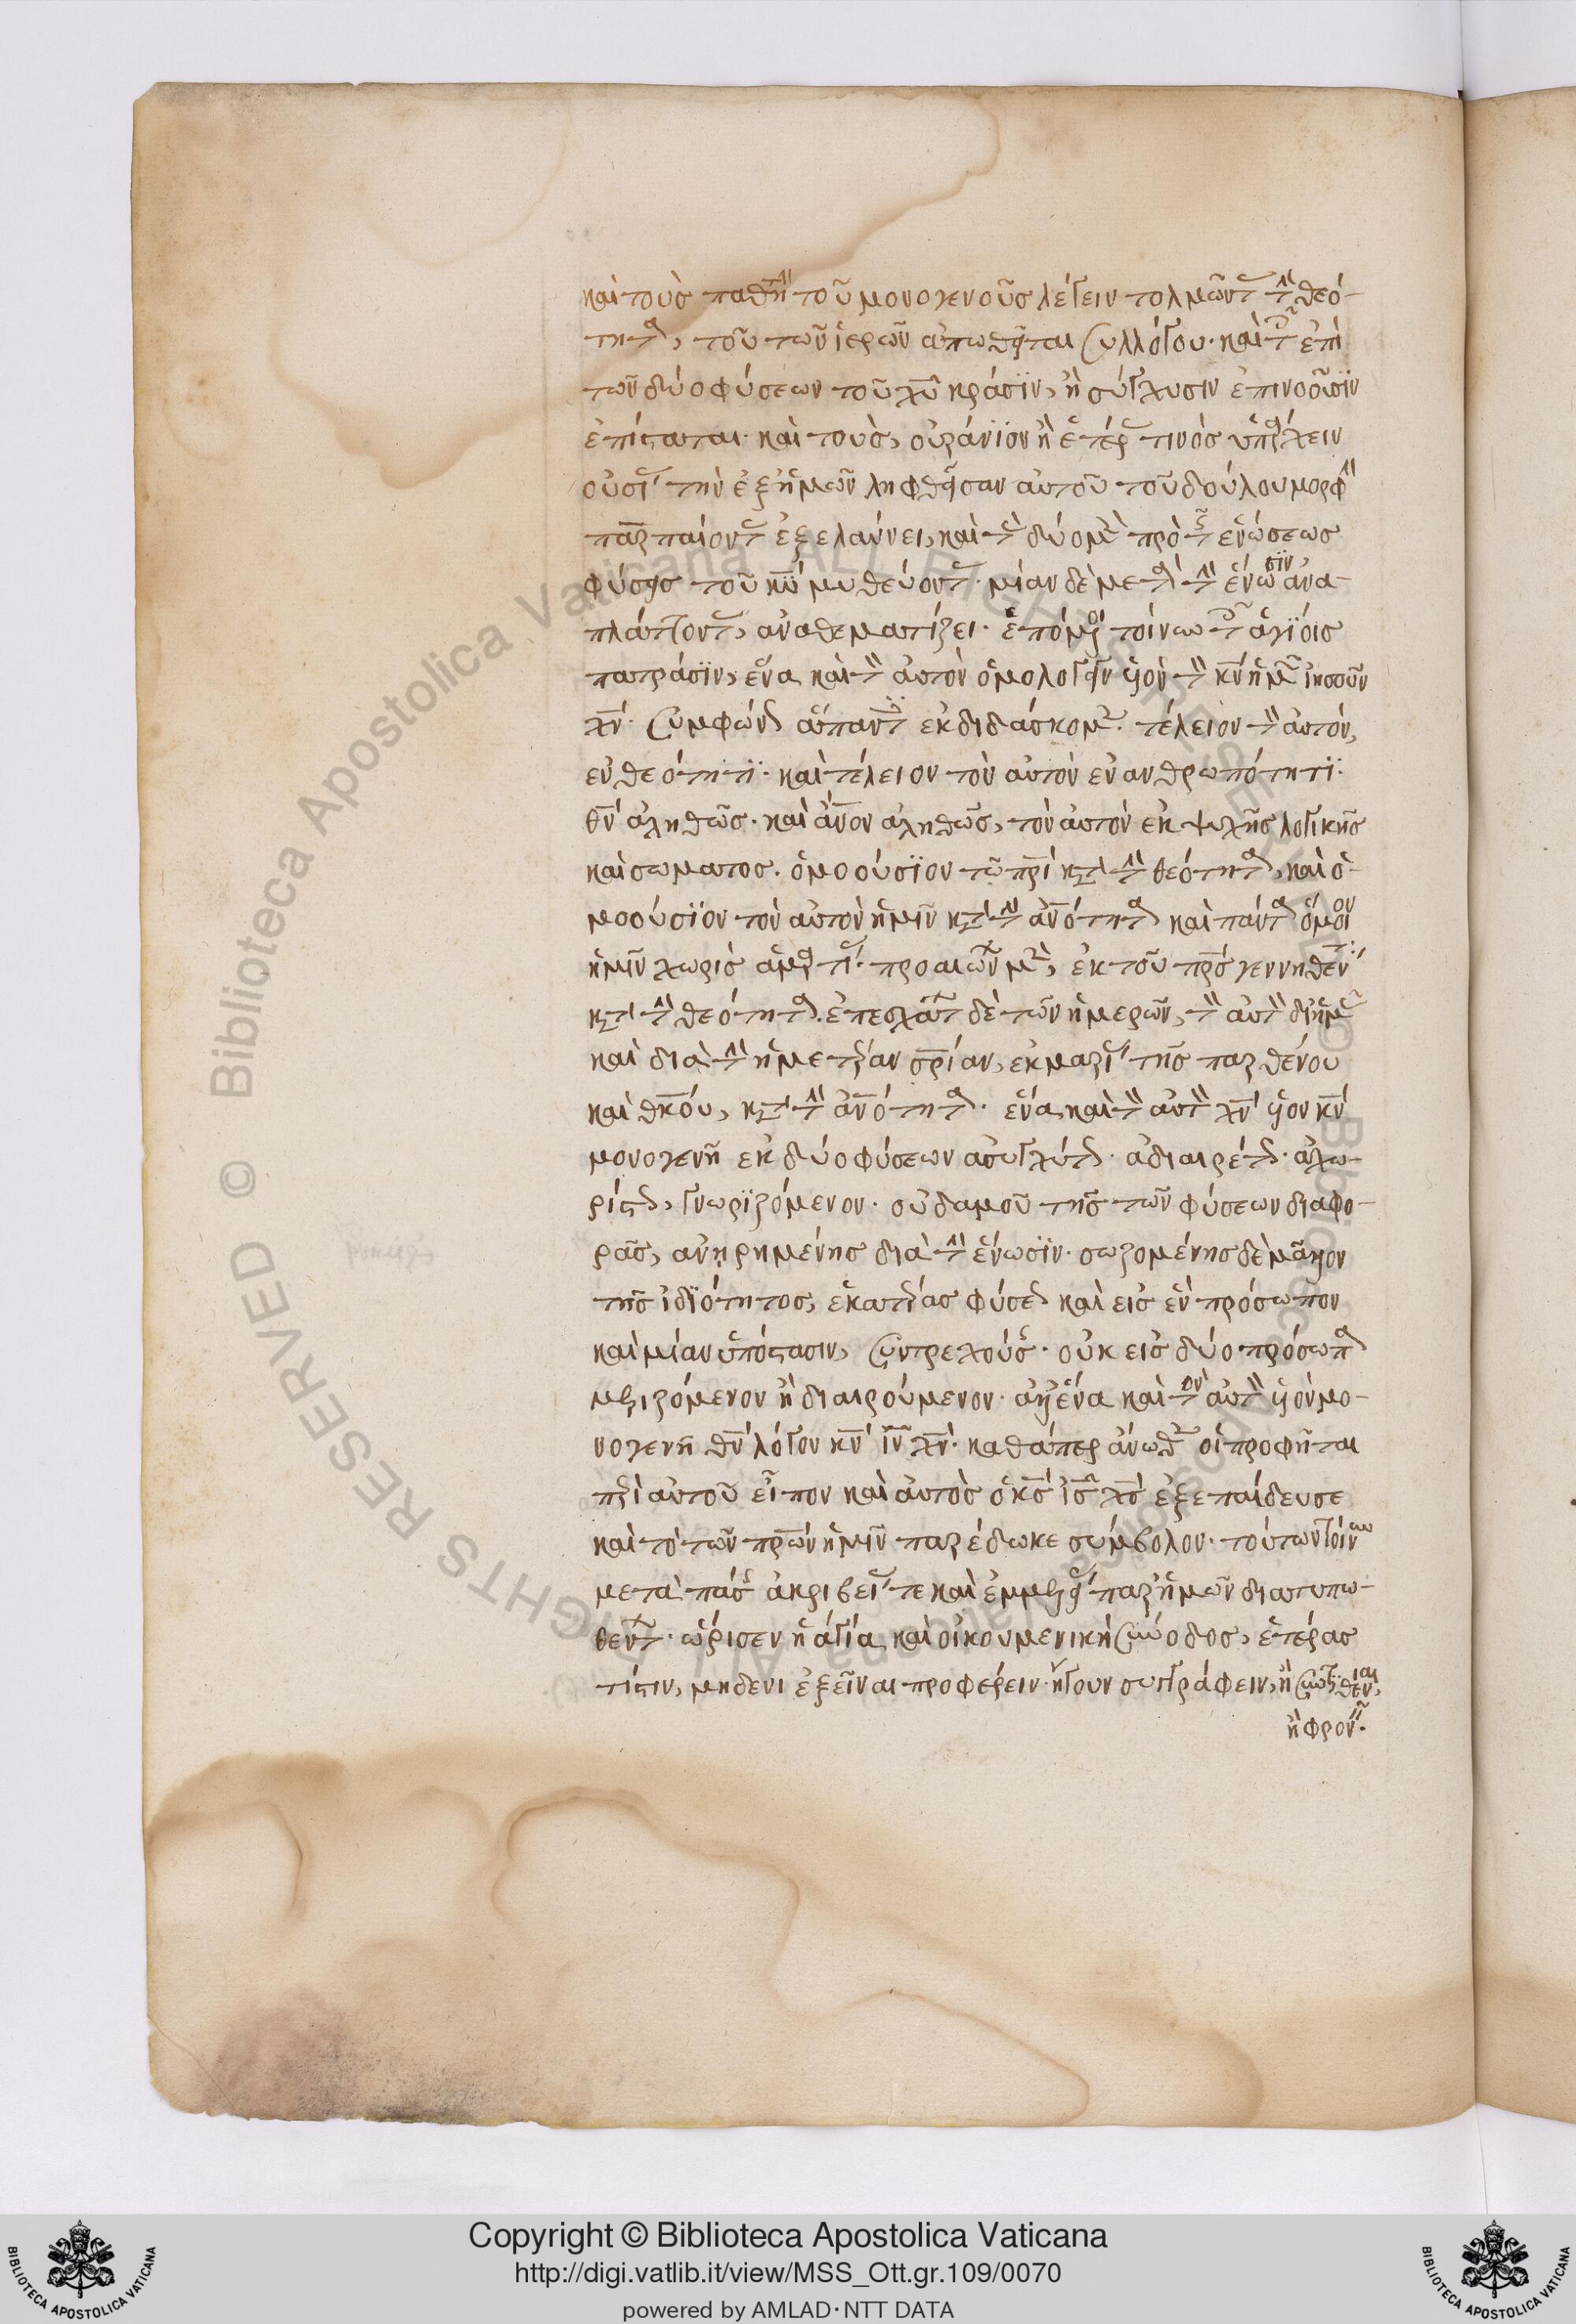 καὶ τοὺς παθητὴν τοῦ μονογενοῦς λέγειν τολμῶντας τὴν θεό-
τητα, τοῦ τῶν ἱερῶν ἀπωθεῖται συλλόγου· καὶ τοῖς ἐπὶ
τῶν δύο φύσεων τοῦ χυ κράσϊν, ἢ σύγχυσιν ἐπινοοῦσϊν
ἐπίσταται· καὶ τοὺς, οὐράνϊον ἢ ἑτέρας τινὸς ὑπάρχειν
οὐσίας τὴν ἐξ ἡμῶν ληφθεῖσαν αὐτοῦ τοῦ δούλου μορφὴν
παραπαίοντας ἐξελαύνει, καὶ τοὺς δύο μὲν πρὸ τῆς ἑνώσεως
φύσεις τοῦ κυ μυθεύοντας· μίαν δὲ μετὰ τὴν ἕνωσϊν ἀνα-
πλάττοντας, ἀναθεματίζει· ἑπόμενοι τοίνυν τοῖς ἁγίοις
πατράσϊν, ἕνα καὶ τὸν αὐτὸν ὁμολογεῖν υἱὸν τὸν κν ἡμῶν ἰησοῦν
χν· συμφώνως ἅπαντες ἐκδιδάσκομεν· τέλειον τὸν αὐτόν,
ἐν θεότητϊ· καὶ τέλειον τὸν αὐτὸν ἐν ανθρωπότητϊ·
θν ἀληθῶς· καὶ ἄνον ἀληθῶς, τὸν αὐτὸν ἐκ ψυχῆς λογικῆς
καὶ σωματος. ὁμοούσϊον τῶ πρι κατὰ τὴν θεότητα, καὶ ὁ-
μοούσϊον τὸν αὐτὸν ἡμῖν κατὰ τὴν ἀνότητα καὶ πάντα ὅμοιον
ἡμῖν χωρὶς ἁμαρτίας· προαιώνων μὲν, ἐκ τοῦ πρς γεννηθέντα
κατὰ τὴν θεότητα. ἐπεσχάτων δὲ τῶν ἡμερῶν, τὸν αὐτὸν δι ἡμᾶς
καὶ διὰ τὴν ἡμετέραν σρίαν, ἐκ μαρίας τῆς παρθένου
καὶ θκου, κατὰ τὴν ἀνότητα· ἕνα καὶ τὸν αὐτὸν χν υἱον κν
μονογενῆ ἐκ δύο φύσεων ἀσυγχύτως· ἀδιαιρέτως· ἀχω-
ρίστως, γνωρϊζόμενον· οὐδαμοῦ τῆς τῶν φύσεων διαφο-
ρᾶς, ἀνῃρημένης διὰ τὴν ἕνωσϊν· σωζομένης δὲ μᾶλλον
τῆς ἰδϊότητος, ἑκατέρας φύσεως καὶ εις ἓν πρόσωπον
καὶ μίαν ὑπόστασιν, συντρεχούσης· οὐκ εις δύο πρόσωπα
μεριζόμενον ἢ διαιρούμενον· ἀλλ' ἕνα καὶ τὸν αὐτὸν υἱὸν μο-
νογενῆ θν λόγον κν ιν χν· καθάπερ ἄνωθεν οἱ προφῆται
περὶ αὐτοῦ εἶπον καὶ αὐτὸς ὁ κς ις χς ἐξεπαίδευσε
καὶ τὸ τῶν πρων ἡμῖν παρέδωκε σύμβολον· τούτων τοίνυν
μετὰ πάσης ἀκριβείας τε καὶ ἐμμελείας παρ' ἡμῶν διατυπω-
θέντων· ὥρισεν ἡ ἁγία καὶ οἰκουμενικὴ σύνοδος, ἑτέρας
πίστιν, μηδενι ἐξεῖναι προφέρειν· ἤγουν συγγράφειν, ἢ συντιθέναι,
ἢ φρονεῖν.
Copyright © Biblioteca Apostolica Vaticana
http://digi.vatlib.it/view/MSS_Ott.gr.109/0070
powered by AMLAD·NTT DATA